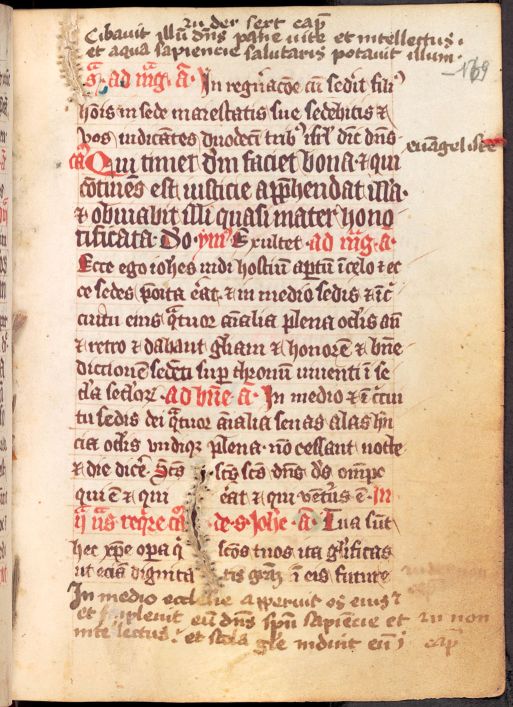 zu der sext cap̄
Cibavit illū dn̄s pane vite et intellectus·
et aqua sapiencie salutaris potauit illum·
169
ad mḡ· a͞· In regn̄acōe cū sed'it fili⁹
hōis in sede maiestatis sue sedebitis ⁊
vos iudicātes duodecī trib⁹ isrl̄ dic̄ dn̄s·
euāgeliste
ca͞ Qui timet dm̄ faciet bona· ⁊ qui
cōtinēs est iusticie app̄hendat illa·
⁊ obuiabit illi quasi mater hono
rificata· Do· ym̄⁹ Exultet· ad mḡ· a͞·
Ecce ego ioh̄es uidi hostiū ap̄tū ī celo ⁊ ec
ce sedes poīta erat· ⁊ in medio sedis ⁊ ī c̄
cuitu eius q̄tuor aīalia plena oclis an̄
⁊ retro ⁊ dabant gl̄iam ⁊ honorē ⁊ bn̄e
diccionē sedēti sup̄ thronum uiuenti ī se
cl̄a seclor̄· ad bn̄e· a͞· In medio ⁊ ī c̄cui
tu sedis dei q̄tuor aīalia senas alas hn̄
cia oclis vndiqꝫ plena· nō cessant nocte
⁊ die dicē· Sc̄s sc̄s sc̄s dn̄s ds̄ om̄ps
qui ē ⁊ qui erat ⁊ qui vent'us ē· In
ij us̄ req̄re ca͞ de· s· Joh̄e· a͞· Tua sūt
hec xp̄e op̄a q̄ sc̄os tuos ita gl̄ificas
ut eciā dignita tis grā͞ ī eis future
In medio ecclesie apperuit os eius⁊
et impleuit eū dn̄s spū sapiēcie et zu non
intellectus· et stola gl̄e induit eū· cap̄